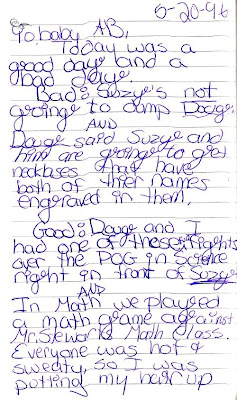 5-20-96
Yo baby AB,
Today was a
good daye and a
bad daye.
Bad: Suzye's not
groinge to dump Douge.
AND
Douge said Suzye and
him are groinge to get
necklases that have
both of thier names
engraved in them.
Good: Douge and I
had one of these fights
over the POG in Science
right in front of Suzye
AND
In Math we playred
a math grame against
Mr. Stewarks Math Glass.
Everyone was hot &
sweaty, so I was
putting my hair up